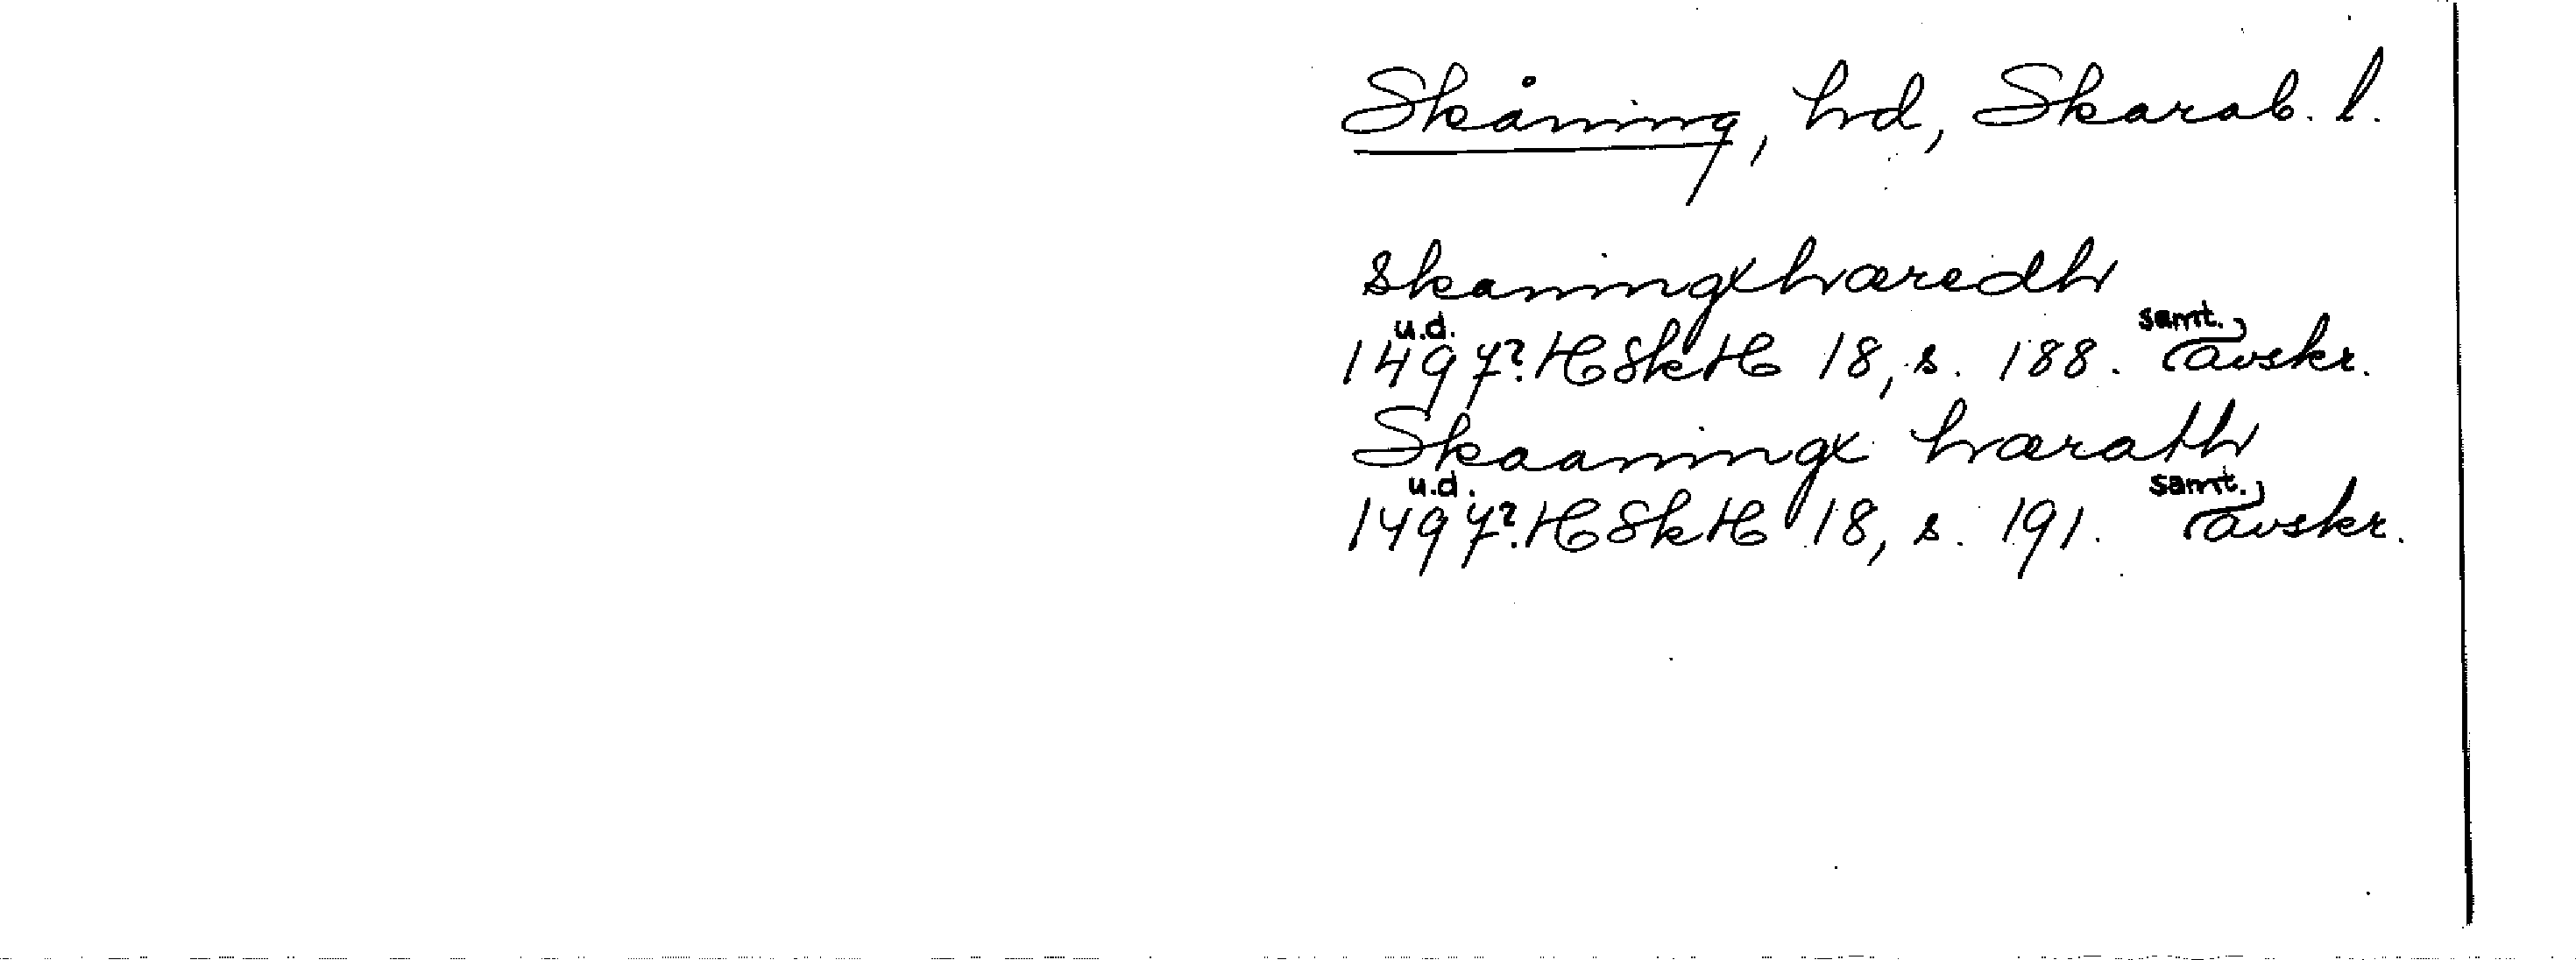 Skåning, hd, Skarab. l.
skaningxhæredh
u.d. samt.
1497? HSkH 18, s. 188. avskr.
Skaaningx hærath
u.d. samt.
1497? HSkH 18, s. 191. avskr.